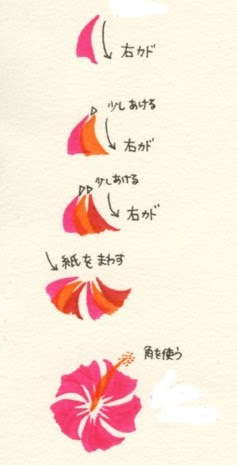 右カド
少しあける
右カド
少しあける
右カド
紙をまわす
角を使う